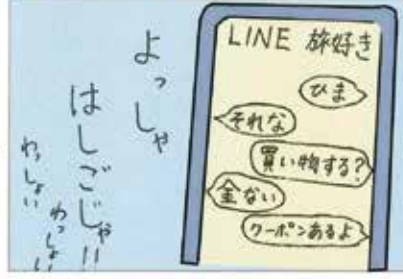 LINE 旅好き
ひま
それな
買い物する?
金ない
クーポンあるよ
よっしゃ
はしごじゃ!!
わっしょい
わっしょい